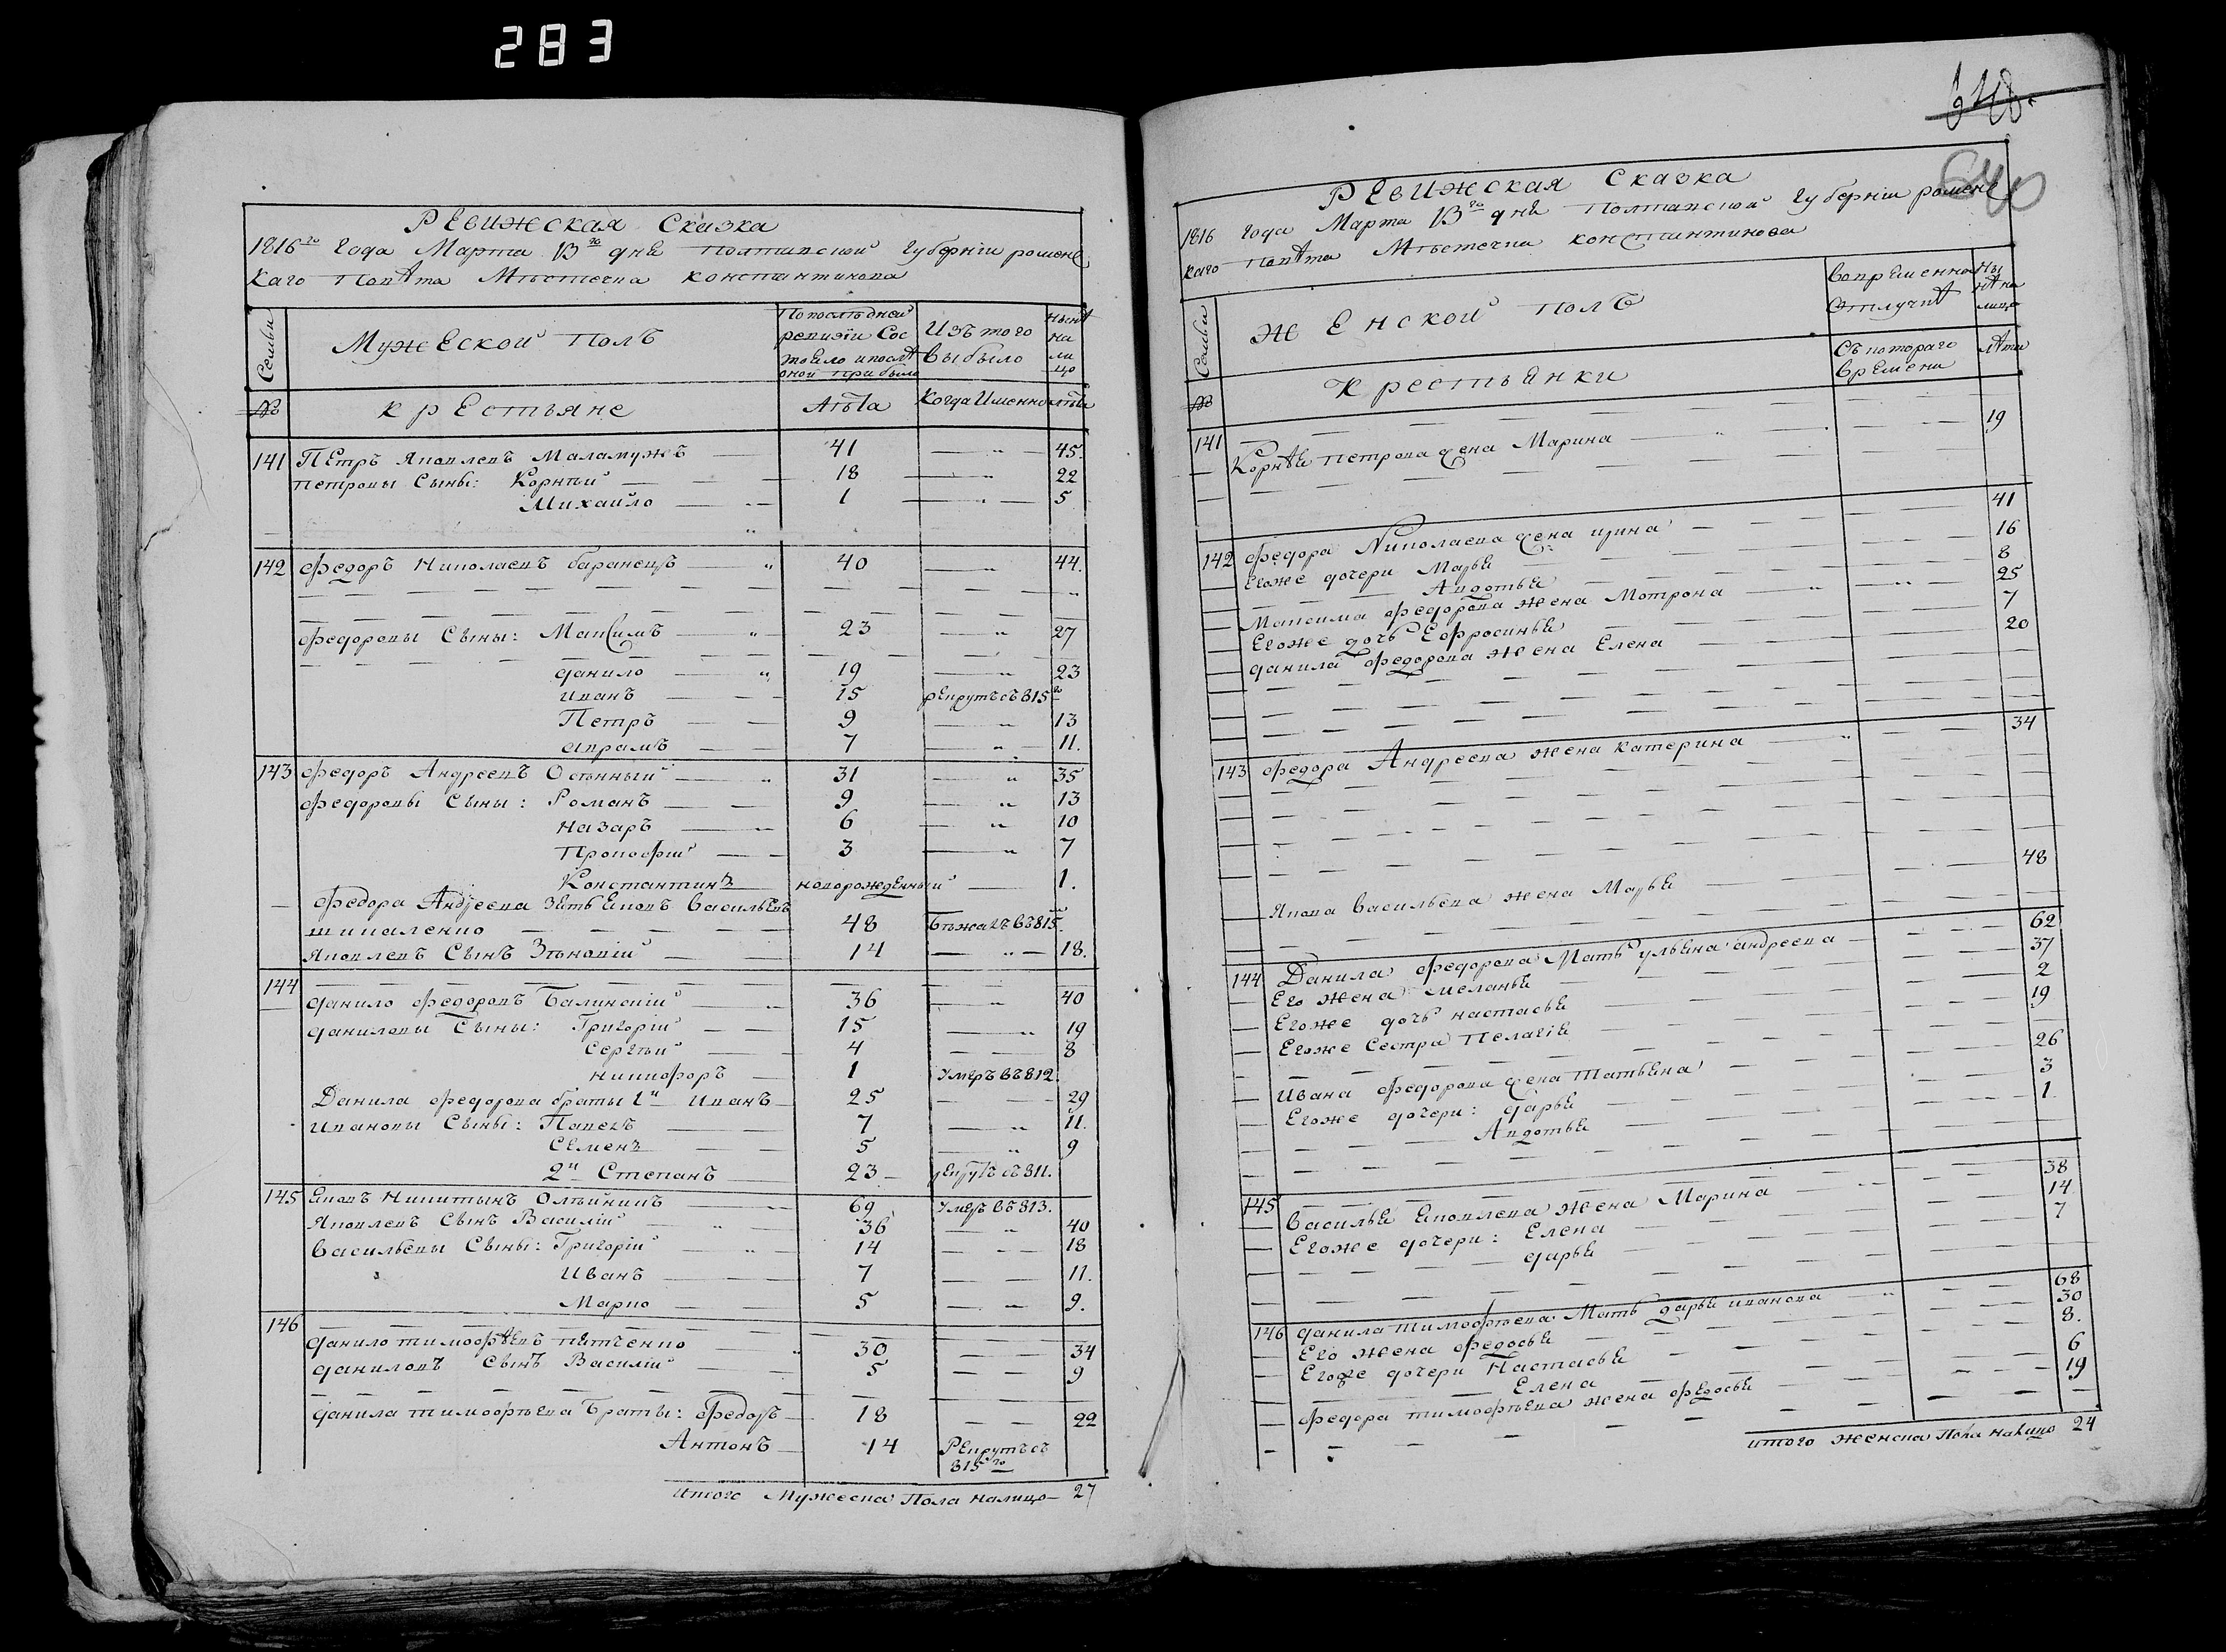 283
648.
640
Ревижская Сказка
1816го Года Марта 13го дня Полтавской Губерніи роменс
каго Повѣта Мѣстечка константинова
Семьи
Мужеской полъ
По послѣдней
ревизіи Сос
тояло и послѣ
оной прибыло
Изъ того
выбыло
Нынѣ
на
ли
цо
№
крестьяне
Лѣта
Когда Именно
лѣта
141 Петръ Яковлевъ Маламужъ 41 45.
петровы Сыны: Корнѣй 18 22
Михайло 1 5
142 Федоръ Николаевъ баранецъ 40 44.
Федоровы Сыны: Максимъ 23 27
данило 19 23
иванъ 15 рекрутъ съ 815го
Петръ 9 13
аврамъ 7 11.
143 Федоръ Андреевъ 31 35
Федоровы Сыны: Романъ 9 13
Назаръ 6 10
Прокофій 3 7
Константинъ новорожденный 1.
Федора Андреева зять Яковъ Васильевъ
шикаленко 48 бѣжалъ въ 815м
Яковлевъ Сынъ Зѣновій 14 18.
144
данило федоровъ Балинскій 36 40
даниловы Сыны: Григорій 15 19
Сергѣй 4 8
никифоръ 1 Умеръ въ 812.
Данила федорова браты 1й Иванъ 25 29
ивановы Сыны: Павелъ 7 11.
Семенъ 5 9
2й Степанъ 23 рекрутъ съ 811.
145 Яковъ Никитынъ Олѣйникъ 69 Умеръ въ 813.
Яковлевъ Сынъ Василій 36 40
Васильевы Сыны: Григорій 14 18
Иванъ 7 11.
Марко 5 9.
146
данило тимофѣевъ пятченко 30 34
даниловъ Сынъ Василій 5 9
данила тимофѣева Браты: Федоръ 18 22
Антонъ 14 Рекрутъ съ
815го
Итого Мужеска Пола налицо 27
Ревижская Сказка
1816 Года Марта 13го дня Полтавской Губерніи роменс
каго Повѣта Мѣстечка константинова
Семьи
Женской полъ
Вовременно
Отлучкѣ
Ны
нѣ на
лицо
№
Крестьянки
Съ котораго
времени
лѣта
141
Корнѣя петрова жена Марина 19
142 Федора Николаева жена ирина 41
Егоже дочери Марья 16
Авдотья 8
Максима федорова жена Мотрона 25
Егоже дочь Ефросинья 7
данила федорова жена Елена 20
143 Федора Андреева жена катерина 34
Якова Васильева жена Марья 48
144 Данила федорова Мать ульяна андреева 62
Его жена меланья 37
Егоже дочь настасья 2
Егоже Сестра пелагія 19
Ивана федорова жена татьяна 26
Егоже дочери: дарья 3
Авдотья 1.
145
Василья яковлева жена Марина 38
Егоже дочери: Елена 14
дарья 7
146 данила тимофѣева Мать дарья иванова 68
Его жена федосья 30
Егоже дочери Настасья 8.
Елена 6
федора тимофѣева жена федосья 19
итого женска Пола налицо 24